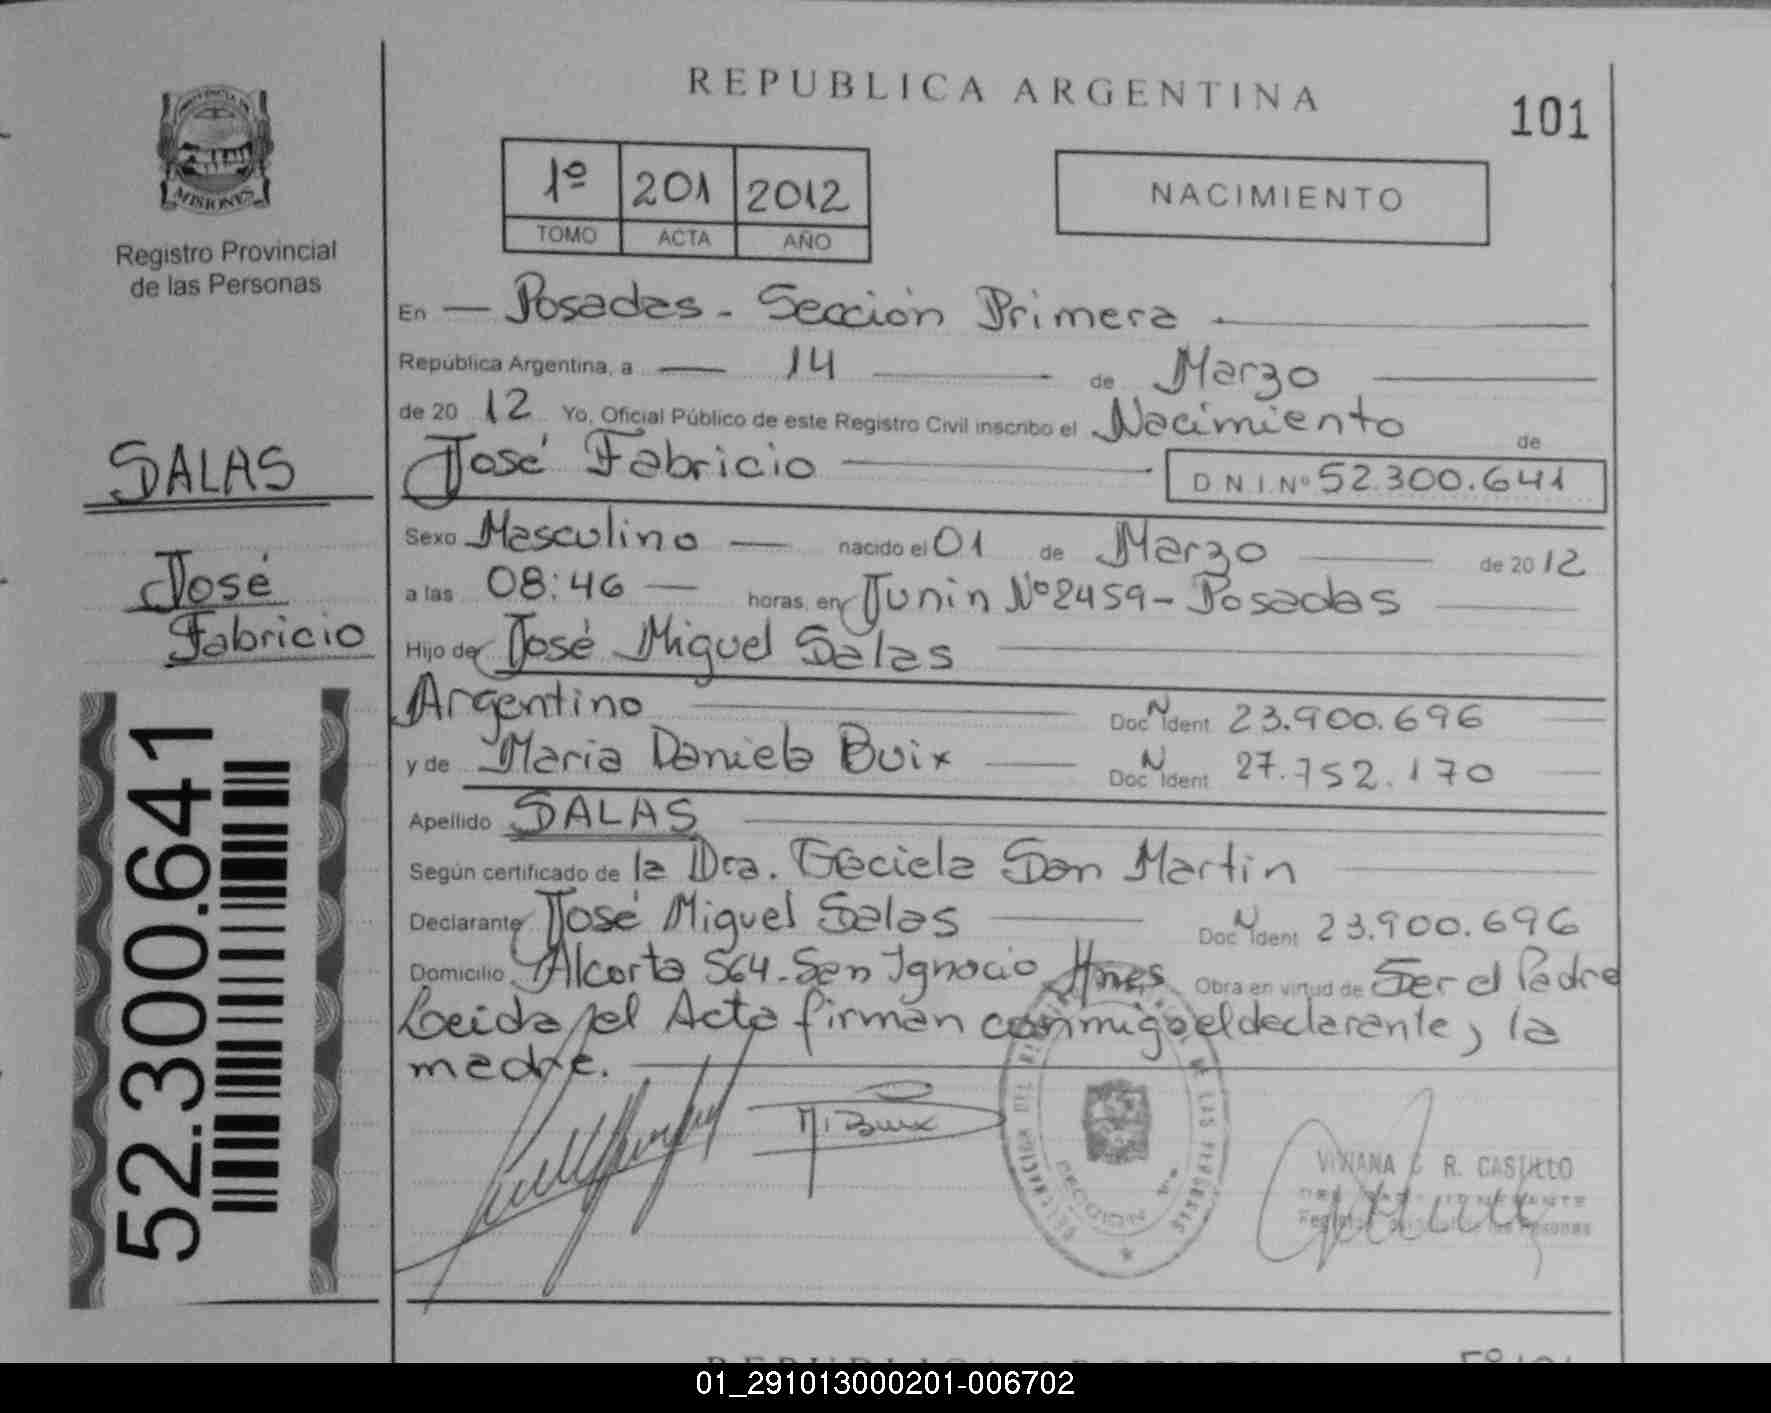 REPUBLICA ARGENTINA
101
1º 201 2012
TOMO ACTA AÑO
NACIMIENTO
PROVINCIA DE
MISIONES
Registro Provincial
de las Personas
SALAS
José
Fabricio
52.300.641
En — Posadas - Sección Primera
República Argentina, a — 14 — de Marzo
de 20 12 Yo, Oficial Público de este Registro Civil inscribo el Nacimiento de
José Fabricio — D.N.I.Nº 52.300.641
Sexo Masculino — nacido el 01 de Marzo — de 20 12
a las 08:46 — horas, en Junin Nº 2459 - Posadas
Hijo de José Miguel Salas
Argentino — Doc. N Ident. 23.900.696
y de Maria Daniela Buix — Doc. N Ident. 27.752.170
Apellido SALAS
Según certificado de la Dra. Graciela San Martin
Declarante José Miguel Salas — Doc. N Ident. 23.900.696
Domicilio Alcorta 564 - San Ignacio Mnes. Obra en virtud de Ser el Padre
Leida el Acta firman conmigo el declarante, la
madre.
R. CASTILLO
01_291013000201-006702